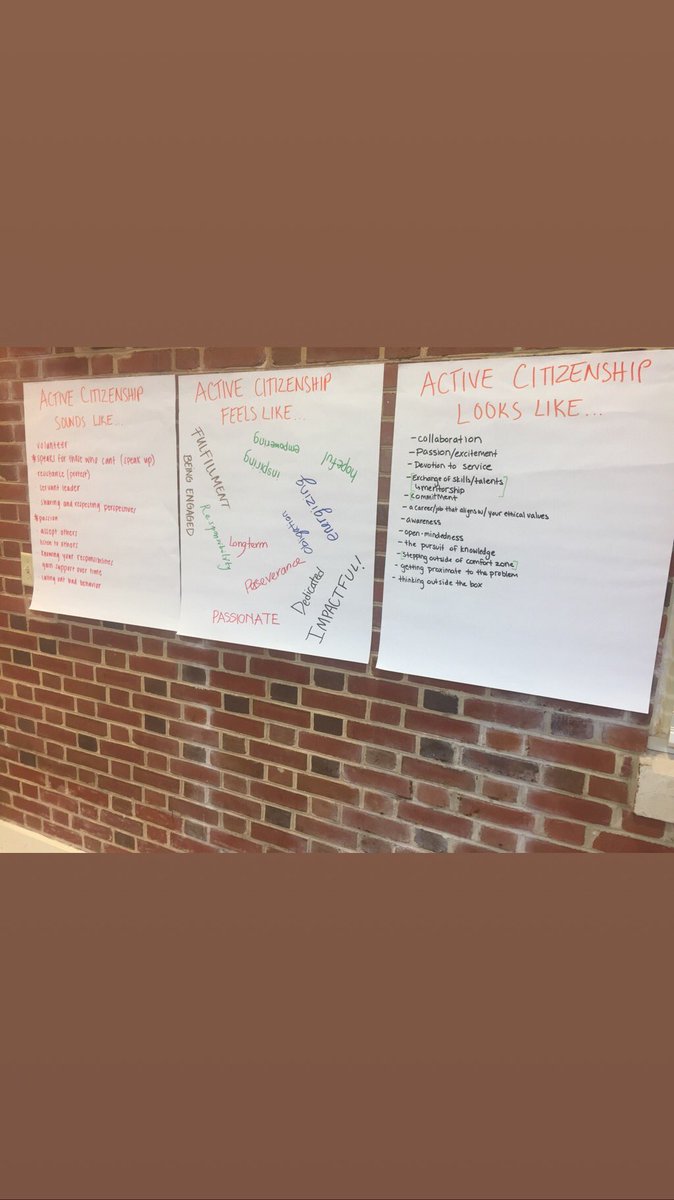 ACTIVE CITIZENSHIP
SOUNDS LIKE...
volunteer
*speaks for those who cant (speak up)
resistance (protest)
servant leader
sharing and respecting perspectives
*passion
accept others
listen to others
knowing your responsibilities
gain support over time
calling out bad behavior
ACTIVE CITIZENSHIP
FEELS LIKE...
FULFILLMENT
BEING ENGAGED
empowering
inspiring
hopeful
energizing
obligation
Responsibility
Longterm
Perseverance
Dedicated
IMPACTFUL!
PASSIONATE
ACTIVE CITIZENSHIP
LOOKS LIKE...
-collaboration
-Passion/excitement
-Devotion to service
-Exchange of skills/talents
↳mentorship
-Kommitment
-a career/job that aligns w/ your ethical values
-awareness
-open-mindedness
-the pursuit of knowledge
-Stepping outside of comfort zone
-getting proximate to the problem
-thinking outside the box